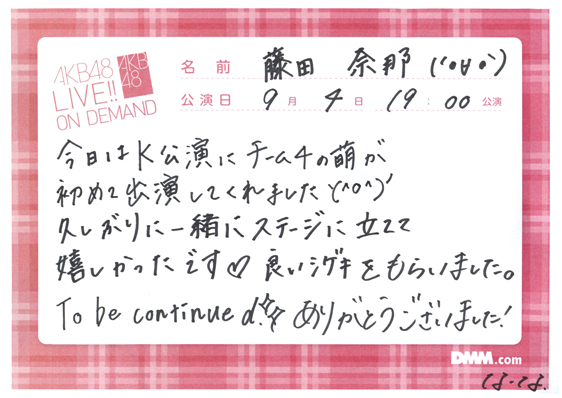 AKB48
LIVE!!
ON DEMAND
AKB
48
名前 藤田 奈那 (^o∀o^)
公演日 9月 4日 19:00 公演
今日はK公演にチーム4の萌が
初めて出演してくれましたヾ(^o^)ﾉ
久しがりに一緒にステージに立てて
嬉しかったです♡ 良いシゲキをもらいました。
To be continued☆彡 ありがとうございました!
DMM.com